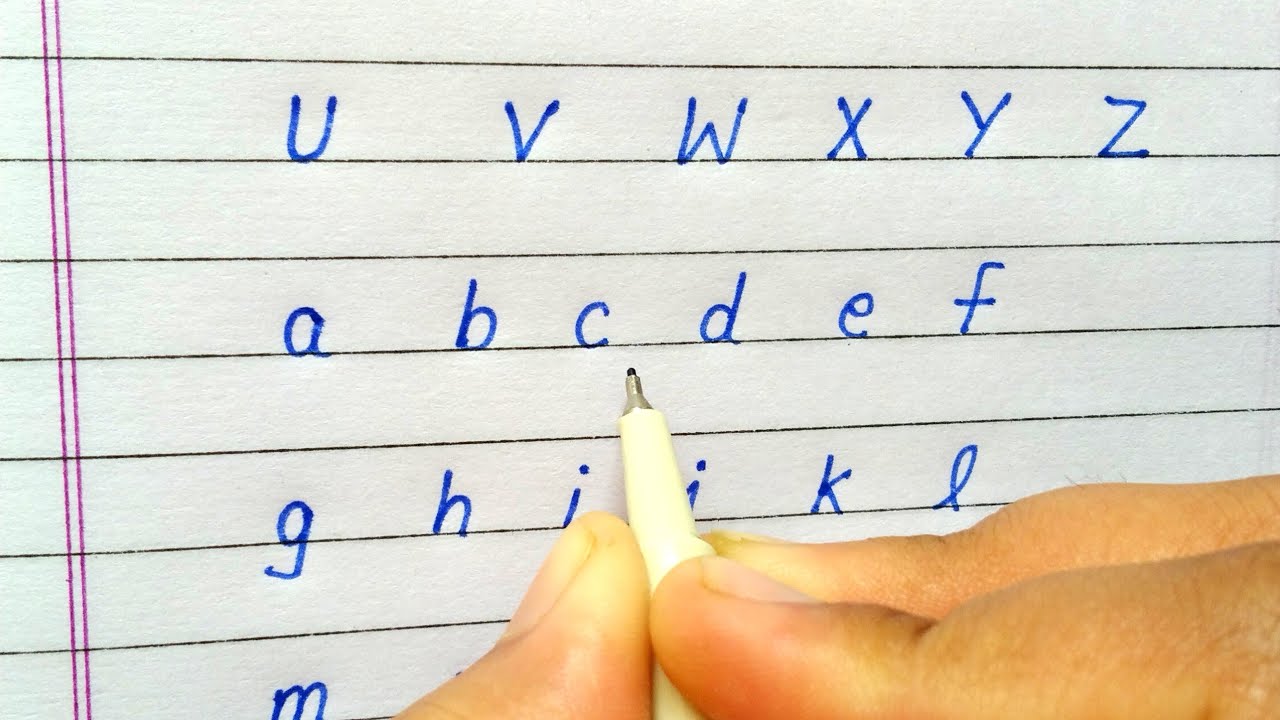 U V W X Y Z
a b c d e f
g h i j k l
m